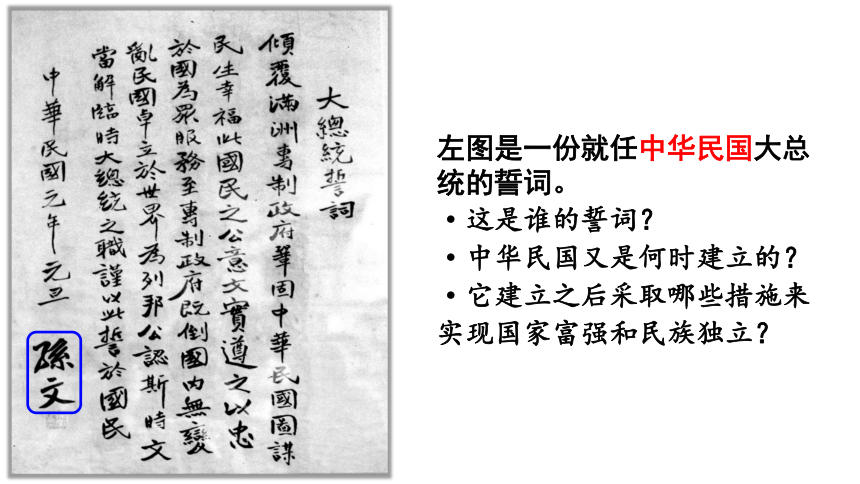 大總統誓詞
傾覆滿洲專制政府鞏固中華民國圖謀
民生幸福此國民之公意文實遵之以忠
於國為眾服務至專制政府既倒國內無變
亂民國卓立於世界為列邦公認斯時文
當解臨時大總統之職謹以此誓於國民
中華民國元年元旦
孫文
左图是一份就任中华民国大总
统的誓词。
·这是谁的誓词？
·中华民国又是何时建立的？
·它建立之后采取哪些措施来
实现国家富强和民族独立？